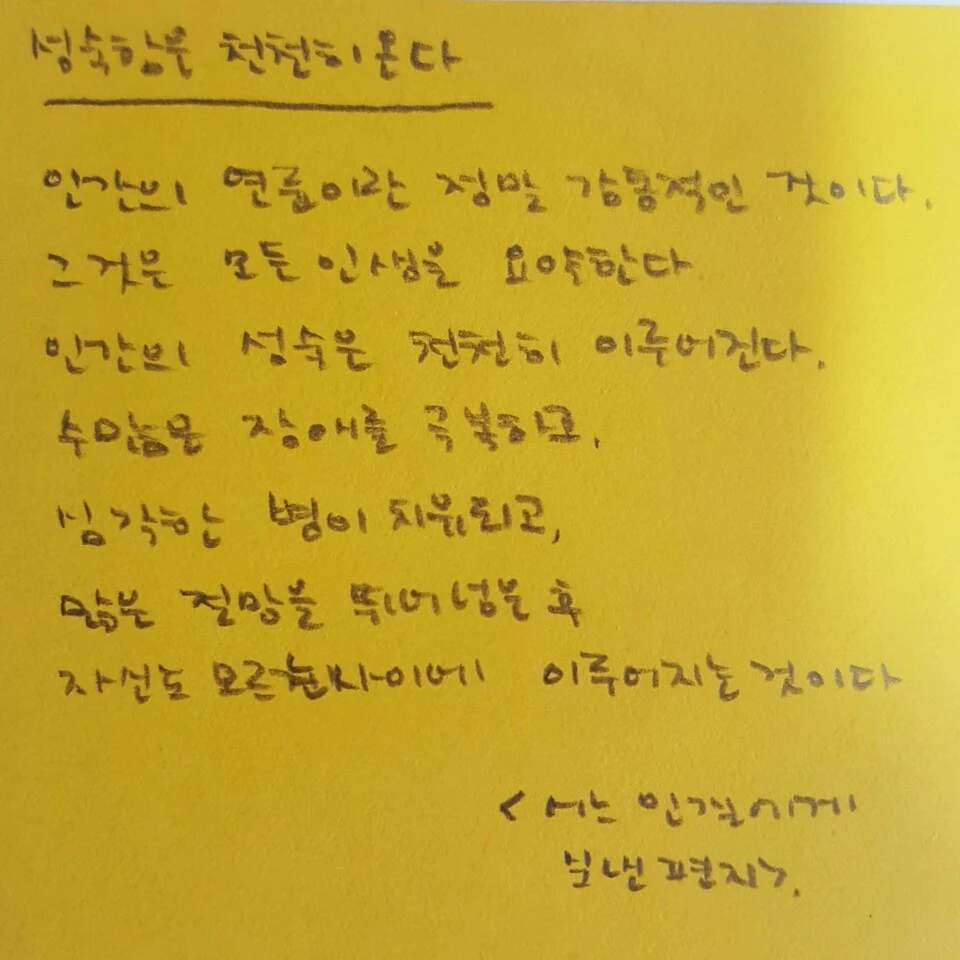 성숙함은 천천히 온다
인간의 연륜이란 정말 감동적인 것이다.
그것은 모든 인생을 요약한다
인간의 성숙은 천천히 이루어진다.
수많은 장애를 극복하고,
심각한 병이 치유되고,
많은 절망을 뛰어넘은 후
자신도 모르는사이에 이루어지는 것이다
< 어느 인질에게
보낸 편지>.